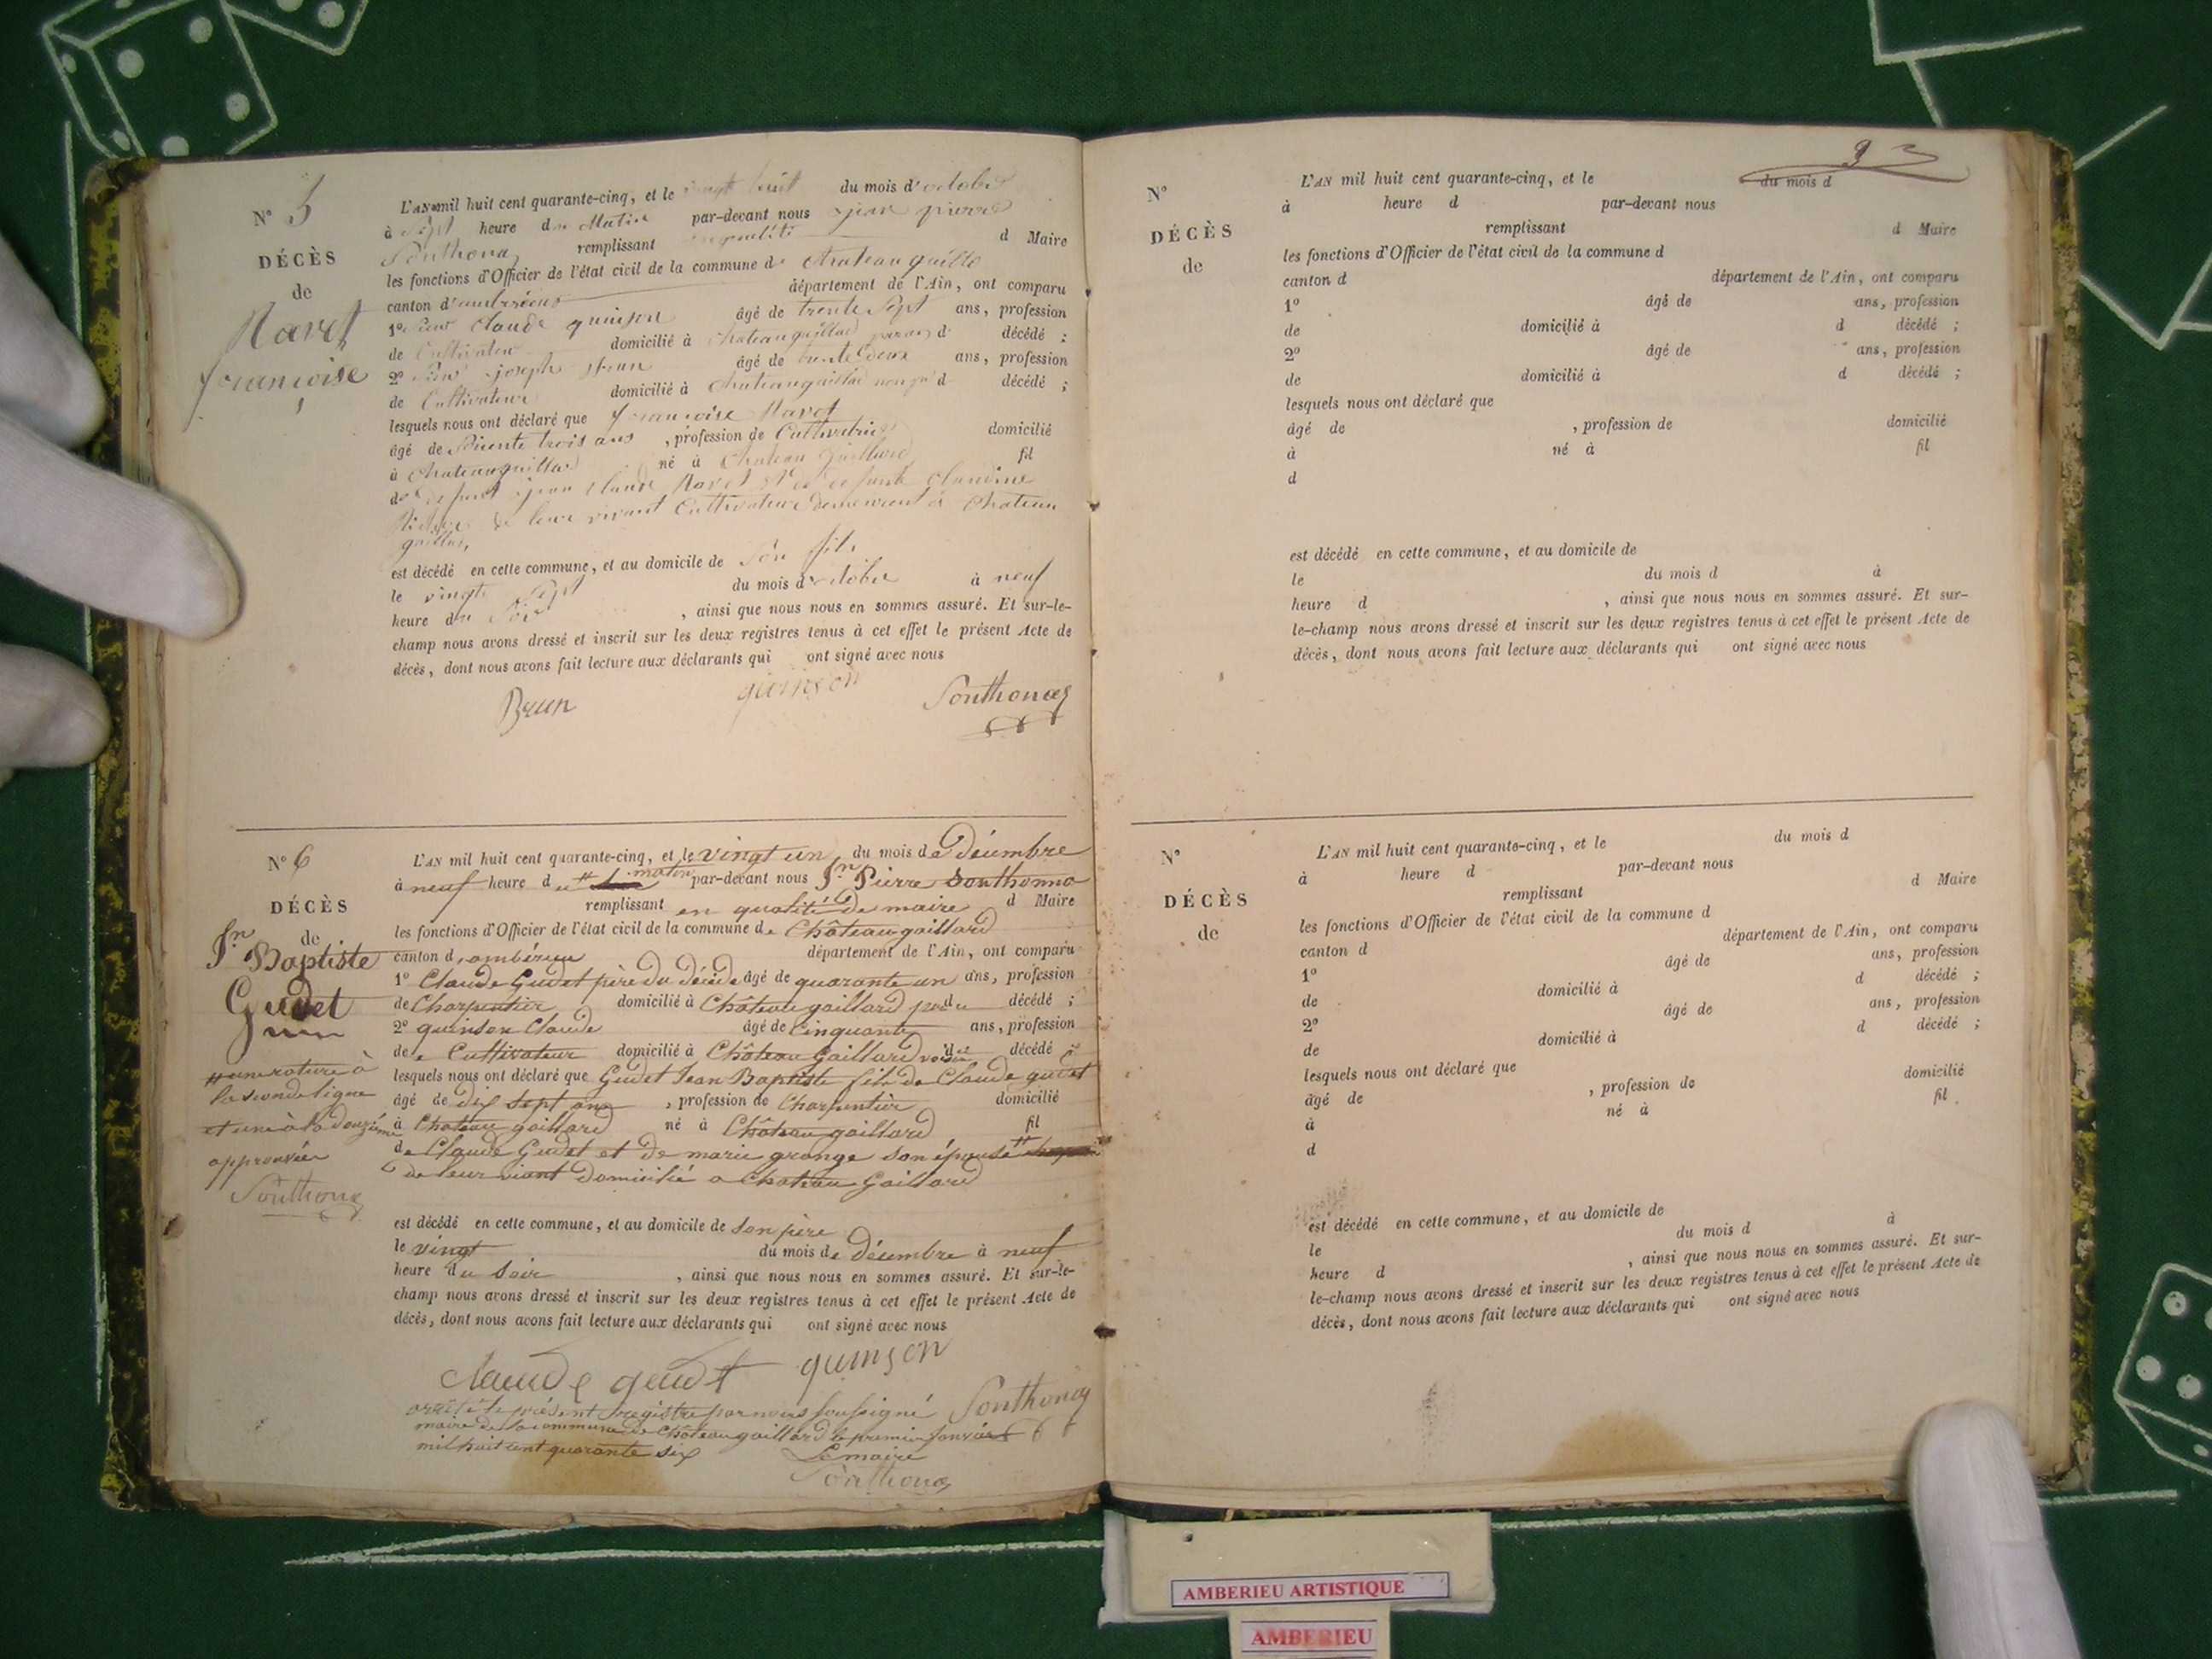 N° 5
DÉCÈS
de
Navet
françoise
L'AN mil huit cent quarante-cinq, et le vingt huit du mois d'octobre
à sept heure du Matin par-devant nous jean pierre
Sonthonax remplissant en qualité d Maire
les fonctions d'Officier de l'état civil de la commune de Chateau gaillard
canton d'ambérieux département de l'Ain, ont comparu
1° Claude quinson âgé de trente Sept ans, profession
de Cultivateur domicilié à Chateaugaillard d décédé ;
2° joseph Brun âgé de trente deux ans, profession
de Cultivateur domicilié à Chateaugaillard d décédé ;
lesquels nous ont déclaré que françoise Navet
âgé de trois ans , profession de Cultivatrice domicilié
à Chateaugaillard né à Chateau Gaillard fil
de défunt jean Claude Navet et de défunte Claudine
de leur vivant Cultivateur demeurant à Chateau
gaillard
est décédé en cette commune, et au domicile de Son fils
le vingt Sept du mois d'octobre à neuf
heure du Soir , ainsi que nous nous en sommes assuré. Et sur-le-
champ nous avons dressé et inscrit sur les deux registres tenus à cet effet le présent Acte de
décès, dont nous avons fait lecture aux déclarants qui ont signé avec nous
Brun quinson Sonthonax
N° 6
DÉCÈS
de
Jn Baptiste
Gudet
# une rature à
la seconde ligne
et une à la douzième
approuvée
Sonthonax
L'AN mil huit cent quarante-cinq, et le vingt un du mois de Décembre
à neuf heure du # matin par-devant nous Jn Pierre Sonthonna
remplissant en qualité de maire d Maire
les fonctions d'Officier de l'état civil de la commune de Château gaillard
canton d'ambérieu département de l'Ain, ont comparu
1° Claude Gudet père du décédé âgé de quarante un ans, profession
de Charpentier domicilié à Château gaillard père du décédé ;
2° quinson Claude âgé de Cinquante ans, profession
de Cultivateur domicilié à Château Gaillard voisin d décédé ;
lesquels nous ont déclaré que Gudet Jean Baptiste fils de Claude gudet
âgé de dix sept ans , profession de Charpentier domicilié
à Chateau gaillard né à Château gaillard fil
de Claude Gudet et de marie grange son épouse #
de leur viant Domicilié a Chateau Gaillard
est décédé en cette commune, et au domicile de Son père
le vingt du mois de décembre à neuf
heure du Soir , ainsi que nous nous en sommes assuré. Et sur-le-
champ nous avons dressé et inscrit sur les deux registres tenus à cet effet le présent Acte de
décès, dont nous avons fait lecture aux déclarants qui ont signé avec nous
claude gudet quinson
Sonthonax
arrêté le présent registre par nous soussigné
maire de la commune de Château gaillard le premier janvier
mil huit cent quarante six Le maire
Sonthonax
9
N°
DÉCÈS
de
L'AN mil huit cent quarante-cinq, et le du mois d
à heure d par-devant nous
remplissant d Maire
les fonctions d'Officier de l'état civil de la commune d
canton d département de l'Ain, ont comparu
1° âgé de ans, profession
de domicilié à d décédé ;
2° âgé de ans, profession
de domicilié à d décédé ;
lesquels nous ont déclaré que
âgé de , profession de domicilié
à né à fil
d
est décédé en cette commune, et au domicile de
le du mois d à
heure d , ainsi que nous nous en sommes assuré. Et sur-
le-champ nous avons dressé et inscrit sur les deux registres tenus à cet effet le présent Acte de
décès, dont nous avons fait lecture aux déclarants qui ont signé avec nous
N°
DÉCÈS
de
L'AN mil huit cent quarante-cinq, et le du mois d
à heure d par-devant nous
remplissant d Maire
les fonctions d'Officier de l'état civil de la commune d
canton d département de l'Ain, ont comparu
1° âgé de ans, profession
de domicilié à d décédé ;
2° âgé de ans, profession
de domicilié à d décédé ;
lesquels nous ont déclaré que
âgé de , profession de domicilié
à né à fil
d
est décédé en cette commune, et au domicile de
le du mois d à
heure d , ainsi que nous nous en sommes assuré. Et sur-
le-champ nous avons dressé et inscrit sur les deux registres tenus à cet effet le présent Acte de
décès, dont nous avons fait lecture aux déclarants qui ont signé avec nous
AMBERIEU ARTISTIQUE
AMBERIEU